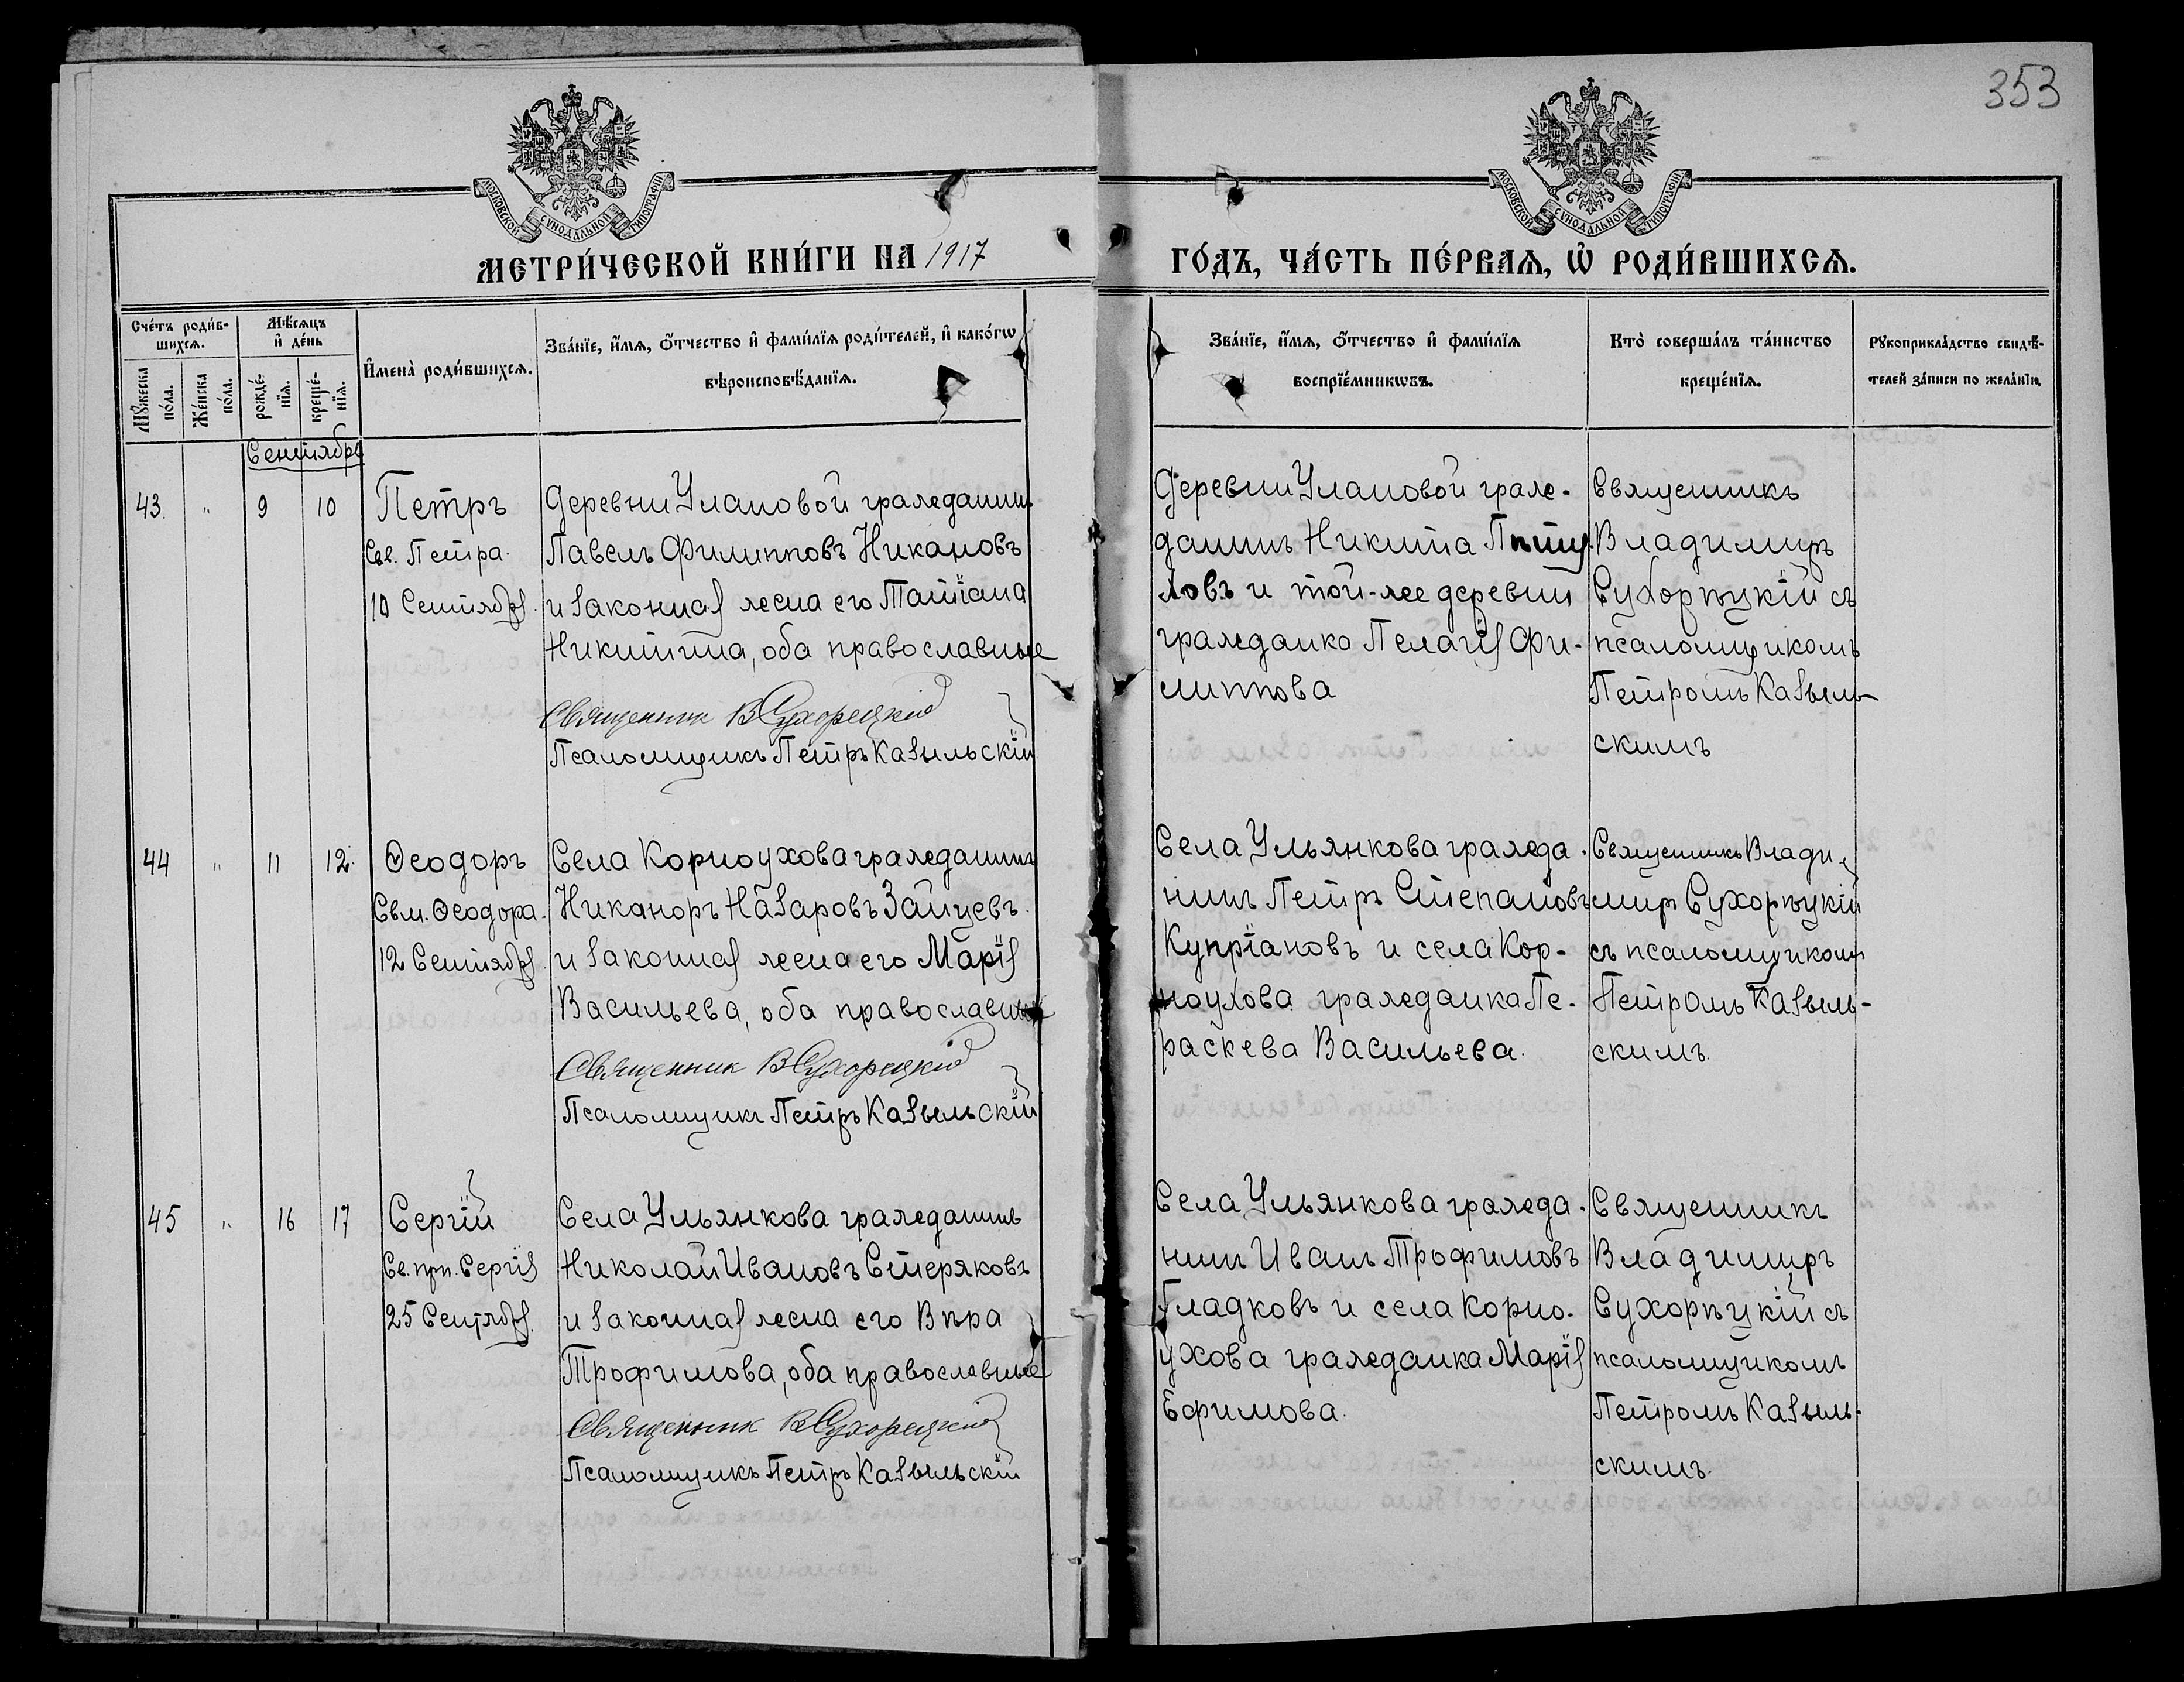 353
МОСКОВСКОЙ СѴНОДАЛЬНОЙ ТИПОГРАФІИ
МОСКОВСКОЙ СѴНОДАЛЬНОЙ ТИПОГРАФІИ
МЕТРИ́ЧЕСКОЙ КНИ́ГИ НА 1917
ГО́ДЪ, ЧА́СТЬ ПЕ́РВАѦ, Ѡ҆ РОДИ́ВШИХСѦ.
Сче́тъ роди́в-
шихсѧ.
Мꙋ́жеска
по́ла.
Же́нска
по́ла.
Мѣ́сѧцъ
и҆ де́нь
рожде́-
нїѧ.
креще́-
нїѧ.
И҆мена̀ роди́вшихсѧ.
Зва́нїе, и҆́мѧ, ѻ҆́тчество и҆ фами́лїѧ роди́телей, и҆ како́гѡ
вѣроисповѣ́данїѧ.
Зва́нїе, и҆́мѧ, ѻ҆́тчество и҆ фами́лїѧ
воспрїе́мникѡвъ.
Кто̀ соверша́лъ та́инство
креще́нїѧ.
Рꙋкоприкла́дство свидѣ́-
телей за́писи по жела́нїю.
Сентябрь
43. " 9 10
Петръ
Св. Петра.
10 Сентября.
Деревни Улановой гражданинъ
Павелъ Филипповъ Никановъ
и законная жена его Татіана
Никитина, оба православные
Священникъ В Сухорецкій
Псаломщикъ Петръ Казыльскій
Деревни Улановой граж-
данинъ Никита
ловъ и той-же деревни
гражданка Пелагія Фи-
липпова
Священникъ
Владимиръ
Сухорѣцкій съ
псаломщикомъ
Петромъ Казыль-
скимъ
44 " 11 12.
Ѳеодоръ
Свм. Ѳеодора.
12 Сентября.
Села Корноухова гражданинъ
Никаноръ Назаровъ Зайцевъ
и законная жена его Марія
Васильева, оба православные
Священникъ В Сухорецкій
Псаломщикъ Петръ Казыльскій
Села Ульянкова гражда-
нинъ Петръ Степановъ
Купріановъ и села Кор-
ноухова гражданка Пе-
раскева Васильева.
Священникъ Влади-
миръ Сухорѣцкій
съ псаломщикомъ
Петромъ Казыль-
скимъ.
45 " 16 17
Сергій
Св. прп. Сергія
25 Сентября.
Села Ульянкова гражданинъ
Николай Ивановъ Стеряковъ
и законная жена его Вѣра
Трофимова, оба православные
Священникъ В Сухорецкій
Псаломщикъ Петръ Казыльскій
Села Ульянкова гражда-
нинъ Иванъ Трофимовъ
Гладковъ и села Корно-
ухова гражданка Марія
Ефимова.
Священникъ
Владимиръ
Сухорѣцкій съ
псаломщикомъ
Петромъ Казыль-
скимъ.